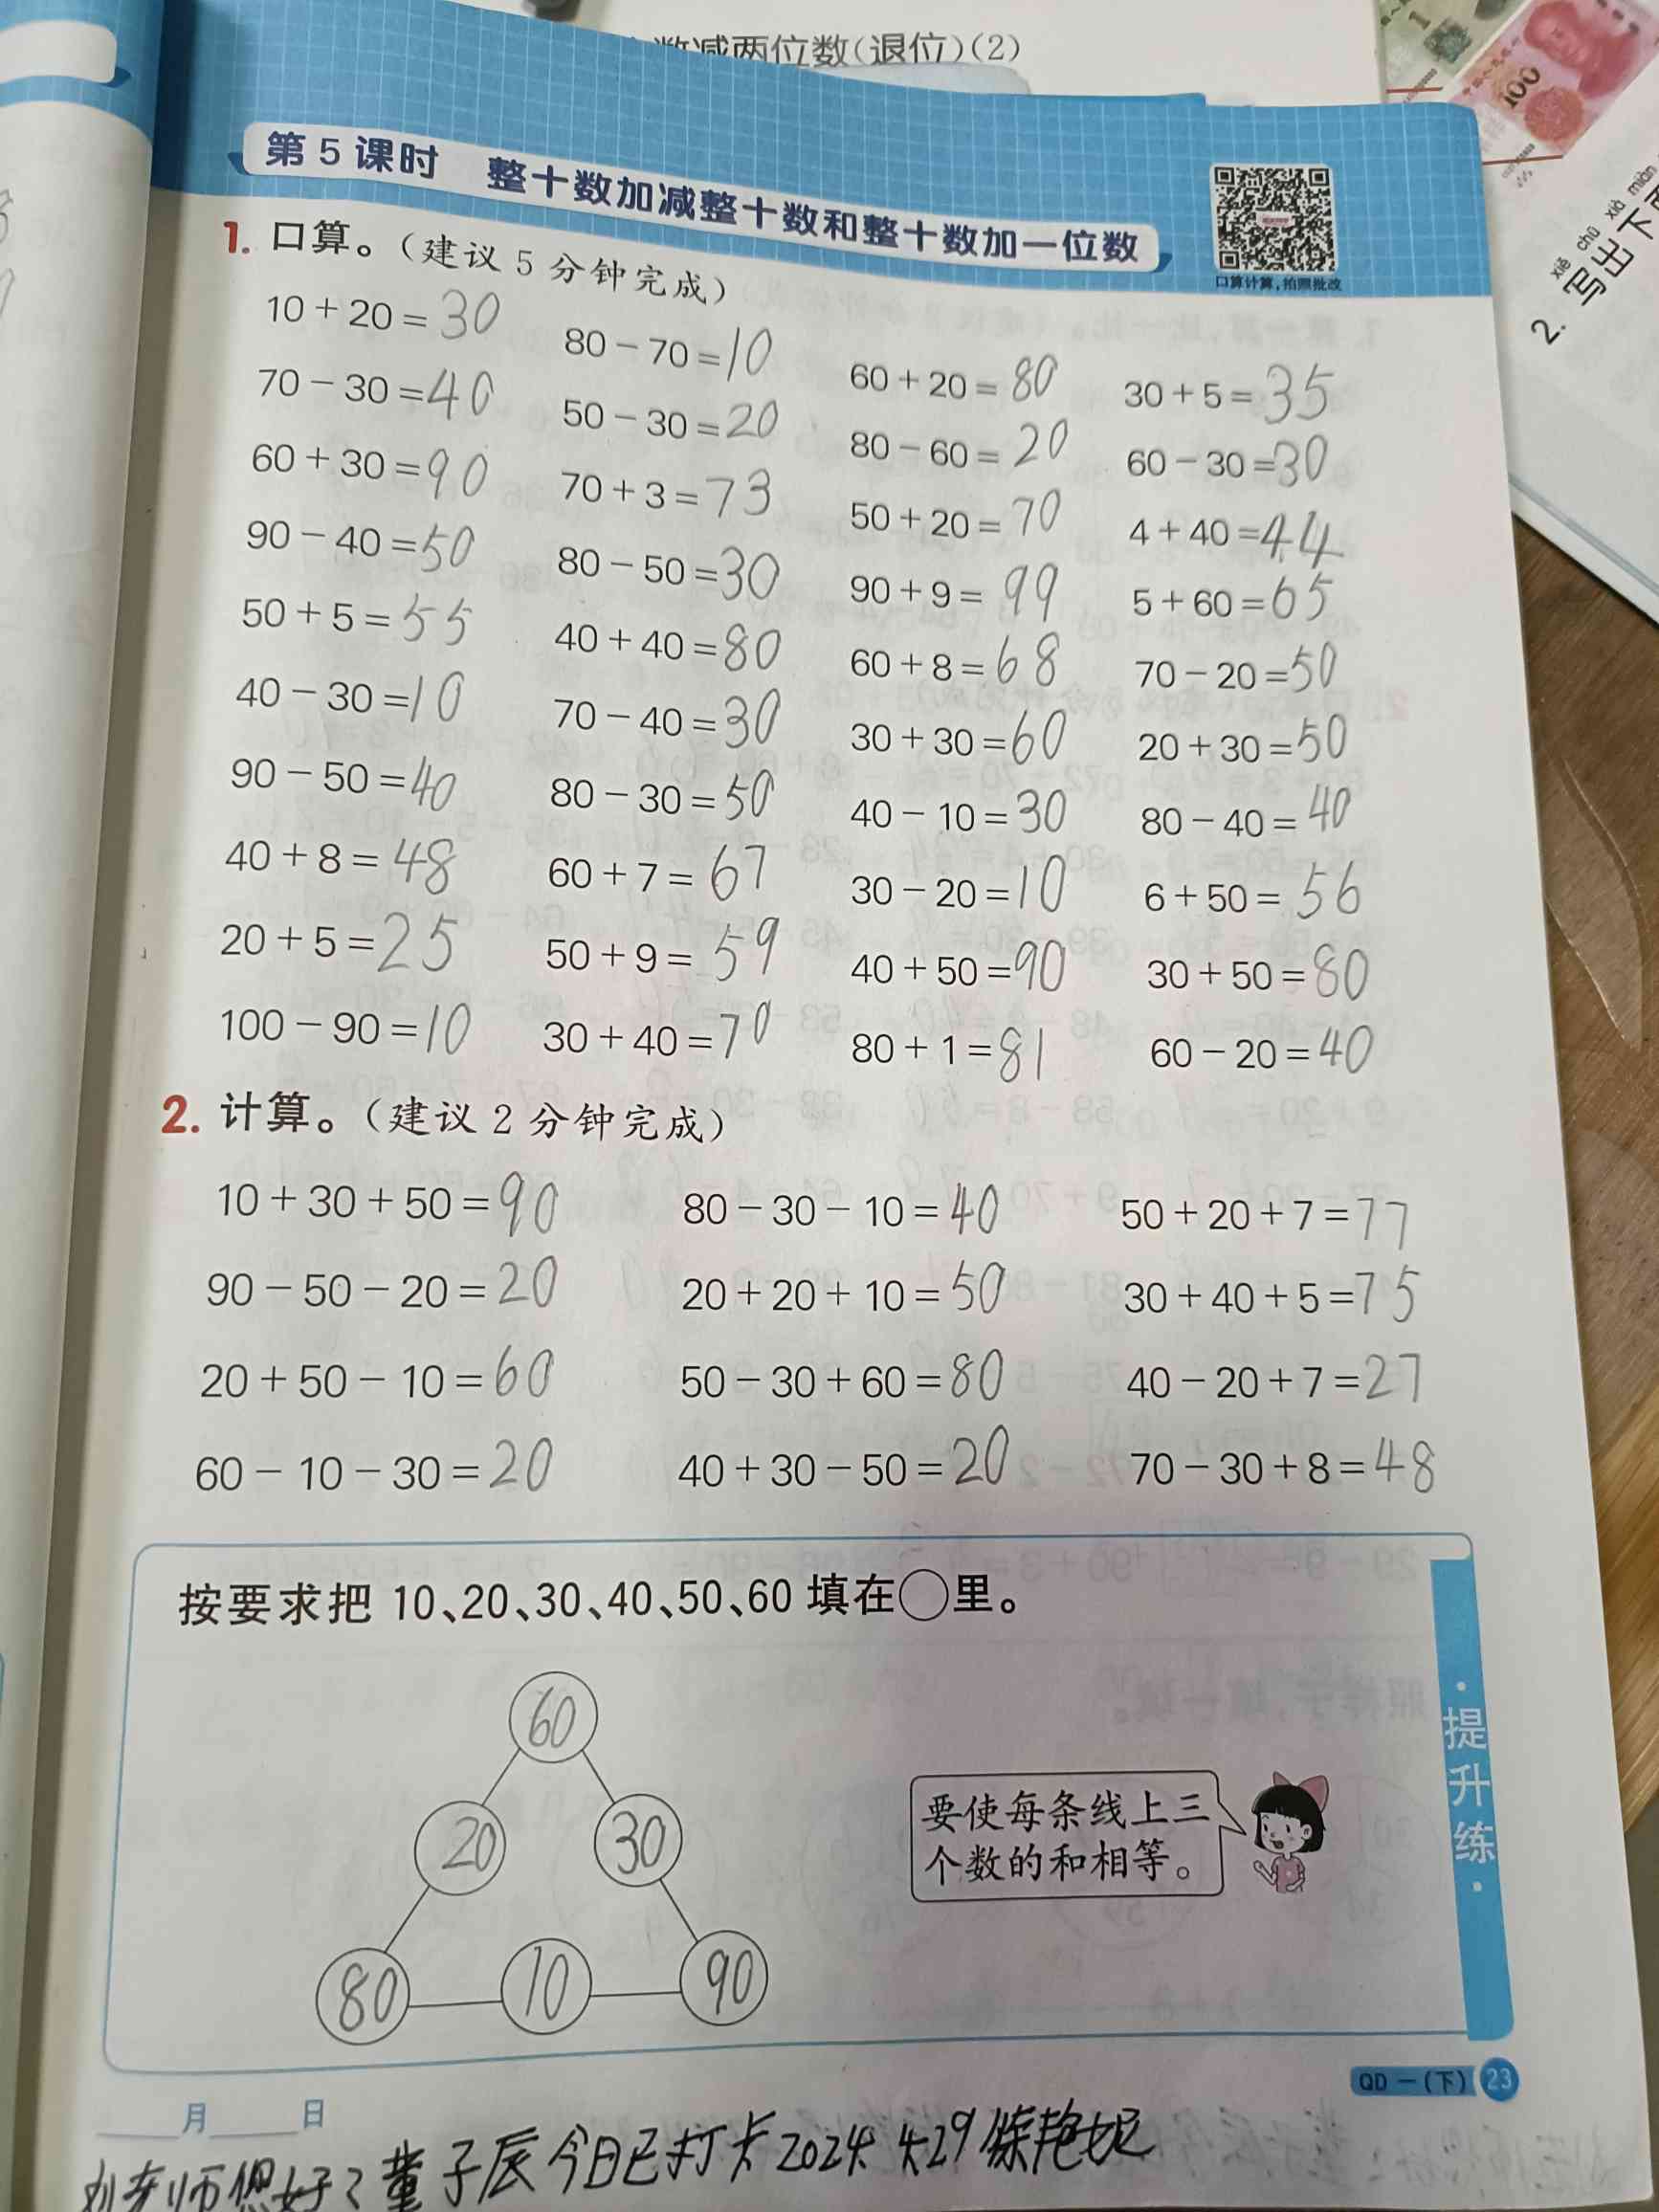 数减两位数(退位)(2)
第5课时 整十数加减整十数和整十数加一位数
口算计算,拍照批改
1. 口算。(建议5分钟完成)
10+20=30 80-70=10 60+20=80 30+5=35
70-30=40 50-30=20 80-60=20 60-30=30
60+30=90 70+3=73 50+20=70 4+40=44
90-40=50 80-50=30 90+9=99 5+60=65
50+5=55 40+40=80 60+8=68 70-20=50
40-30=10 70-40=30 30+30=60 20+30=50
90-50=40 80-30=50 40-10=30 80-40=40
40+8=48 60+7=67 30-20=10 6+50=56
20+5=25 50+9=59 40+50=90 30+50=80
100-90=10 30+40=70 80+1=81 60-20=40
2. 计算。(建议2分钟完成)
10+30+50=90 80-30-10=40 50+20+7=77
90-50-20=20 20+20+10=50 30+40+5=75
20+50-10=60 50-30+60=80 40-20+7=27
60-10-30=20 40+30-50=20 70-30+8=48
按要求把10、20、30、40、50、60填在○里。
60
20 30
80 10 90
要使每条线上三
个数的和相等。
·提升练·
QD一(下) 23
月 日
刘老师您好?董子辰今日已打卡2024.4.29 艳妮
100
1
xiě chū xià miàn
2. 写出下面